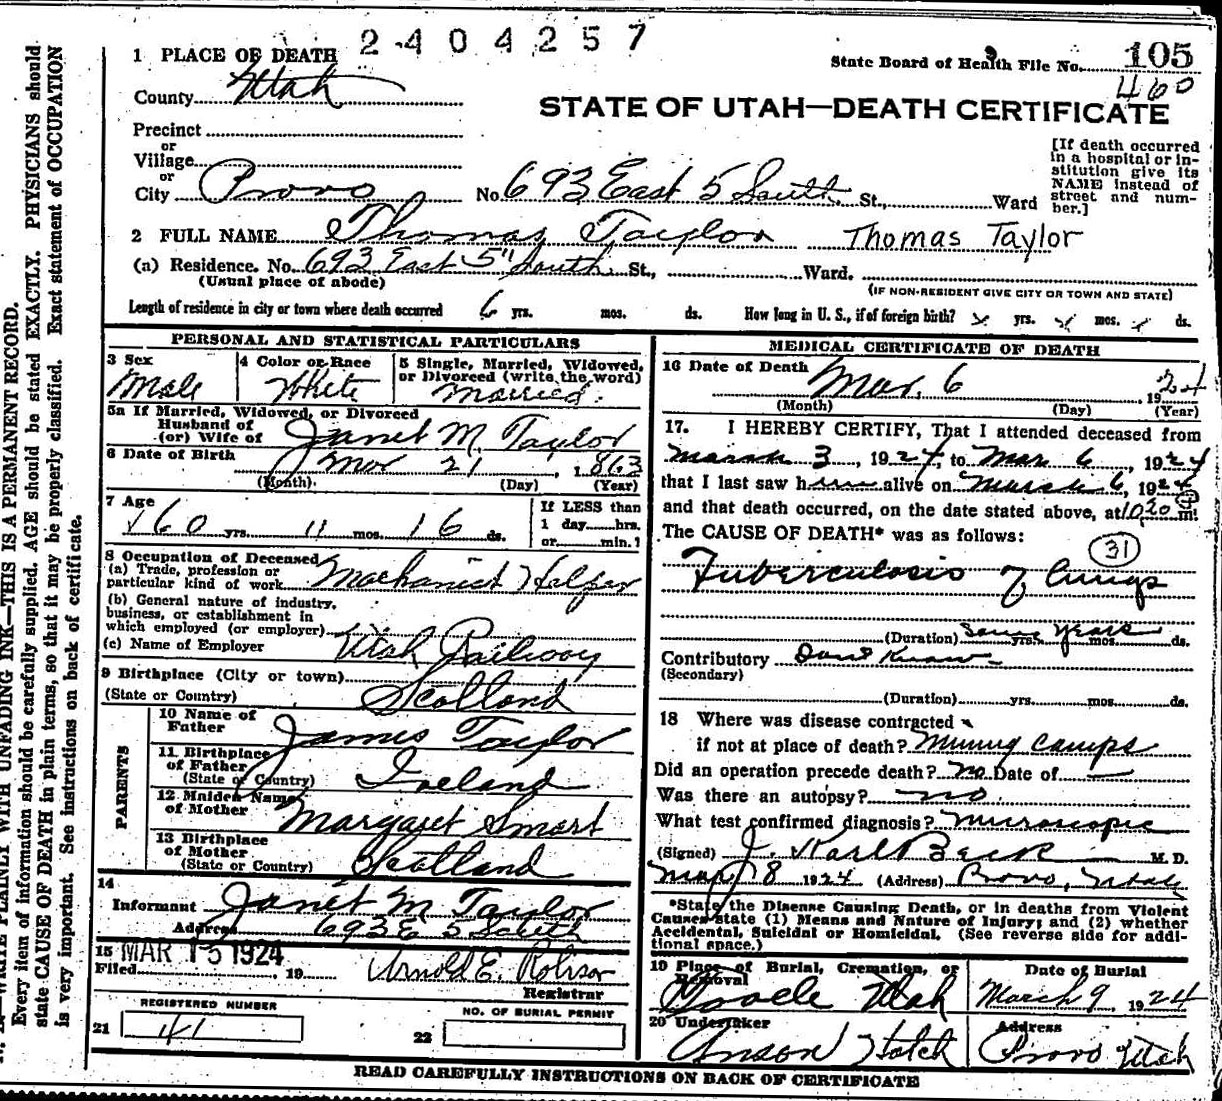 2404257
1 PLACE OF DEATH
State Board of Health File No. 105
460
County Utah
STATE OF UTAH—DEATH CERTIFICATE
Precinct
or
Village
or
City Provo No. 693 East 5 South St., Ward
[If death occurred
in a hospital or in-
stitution give its
NAME instead of
street and num-
ber.]
2 FULL NAME Thomas Taylor Thomas Taylor
(a) Residence. No. 693 East 5" South St., Ward.
(Usual place of abode) (IF NON-RESIDENT GIVE CITY OR TOWN AND STATE)
Length of residence in city or town where death occurred 6 yrs. mos. ds. How long in U. S., if of foreign birth? x yrs. x mos. x ds.
PERSONAL AND STATISTICAL PARTICULARS
3 Sex
Male
4 Color or Race
White
5 Single, Married, Widowed,
or Divorced (write the word)
Married.
5a If Married, Widowed, or Divorced
Husband of
(or) Wife of Janet M. Taylor
6 Date of Birth
Mar 21, 1863
(Month) (Day) (Year)
7 Age
60 yrs. 11 mos. 16 ds.
If LESS than
1 day......hrs.
or......min.?
8 Occupation of Deceased
(a) Trade, profession or
particular kind of work Machanist Helper
(b) General nature of industry,
business, or establishment in
which employed (or employer)
(c) Name of Employer Utah Railway
9 Birthplace (City or town)
(State or Country) Scotland
PARENTS
10 Name of
Father James Taylor
11 Birthplace
of Father
(State or Country) Ireland
12 Maiden Name
of Mother Margaret Smart
13 Birthplace
of Mother
(State or Country) Scotland
14
Informant Janet M Taylor
Address 693 E 5 South
15 MAR 15 1924
Filed 19 Arnold E. Robison
Registrar
REGISTERED NUMBER
21 41
NO. OF BURIAL PERMIT
22
MEDICAL CERTIFICATE OF DEATH
16 Date of Death Mar. 6 1924
(Month) (Day) (Year)
17. I HEREBY CERTIFY, That I attended deceased from
March 3, 1924, to Mar 6, 1924
that I last saw him alive on March 6, 1924
and that death occurred, on the date stated above, at 10:20 m.
The CAUSE OF DEATH* was as follows:
31
Tuberculosis of lungs
(Duration) Some years yrs. mos. ds.
Contributory Dont Know
(Secondary)
(Duration) yrs. mos. ds.
18 Where was disease contracted
if not at place of death? Mining camps
Did an operation precede death? no Date of —
Was there an autopsy? no
What test confirmed diagnosis? Microscopic
(Signed) J. Karl Beck M. D.
Mar 8 1924 (Address) Provo, Utah
*State the Disease Causing Death, or in deaths from Violent
Causes state (1) Means and Nature of Injury; and (2) whether
Accidental, Suicidal or Homicidal. (See reverse side for addi-
tional space.)
19 Place of Burial, Cremation, or
Removal
Utah
Date of Burial
March 9 1924
20 Undertaker
Anson Hatch
Address
Provo Utah
READ CAREFULLY INSTRUCTIONS ON BACK OF CERTIFICATE
WRITE PLAINLY WITH UNFADING INK—THIS IS A PERMANENT RECORD.
Every item of information should be carefully supplied. AGE should be stated EXACTLY. PHYSICIANS should
state CAUSE OF DEATH in plain terms, so that it may be properly classified. Exact statement of OCCUPATION
is very important. See instructions on back of certificate.